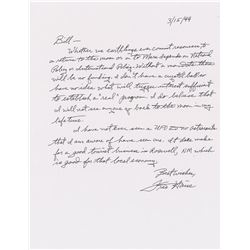 3/15/99
Bill—
Whether we earthlings can commit resources to
a return to the moon or on to Mars depends on National
Policy or International Policy. Without a concrete there
will be no funding. I don't have a crystal ball or
have an idea what will trigger interest sufficient
to establish a "real" program. I do believe that
I will not see anyone go back to the moon in my
lifetime.
I have not ever seen a UFO and no astronauts
that I am aware of have seen one. It does make
for a good tourist business in Roswell, NM which
is good for that local economy.
Best wishes,